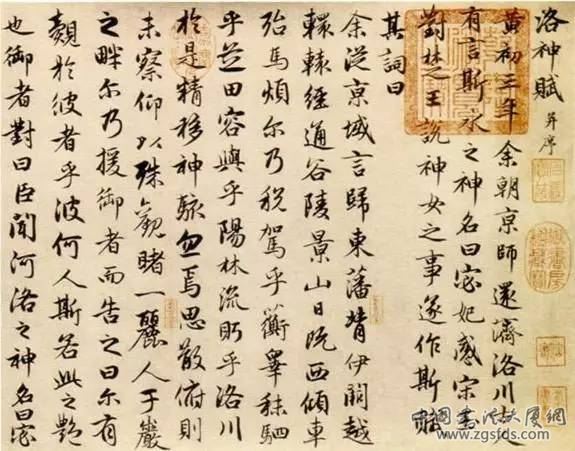 洛神賦 并序
黄初三年余朝京師還濟洛川古人
有言斯水之神名曰宓妃感宋玉
對楚王說神女之事遂作斯賦
其詞曰
余從京域言歸東藩背伊闕越
轘轅經通谷陵景山日既西傾車
殆馬煩尔乃稅駕乎蘅皋秣駟
乎芝田容與乎陽林流眄乎洛川
於是精移神駭忽焉思散俯則
未察仰以殊觀睹一麗人于巖
之畔尔乃援御者而告之曰尔有
覿於彼者乎彼何人斯若此之艷
也御者對曰臣聞河洛之神名曰宓
中国书法大厦网
www.zgsfds.com